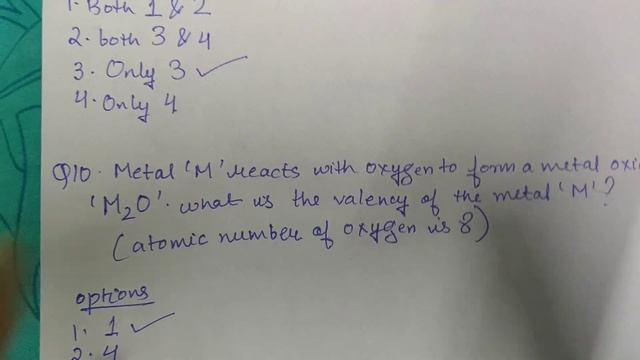 1. Both 1 & 2
2. both 3 & 4
3. Only 3 ✓
4. Only 4
Q10. Metal 'M' reacts with oxygen to form a metal oxi
'M₂O'. what is the valency of the metal 'M'?
(atomic number of oxygen is 8)
options
1. 1 ✓
2. 4